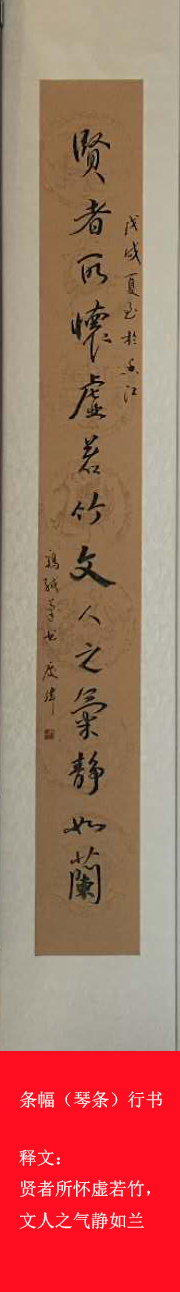 戊戌夏至於香江
賢者所懷虚若竹文人之氣静如蘭
条幅（琴条）行书
释文：
贤者所怀虚若竹，
文人之气静如兰